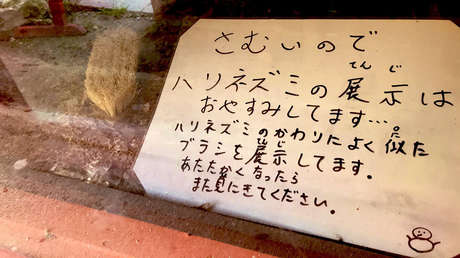 さむいので
ハリネズミの展示は
てんじ
おやすみしてます…
ハリネズミのかわりによく似た
に
ブラシを展示してます。
てんじ
あたたかくなったら
また見にきてください。